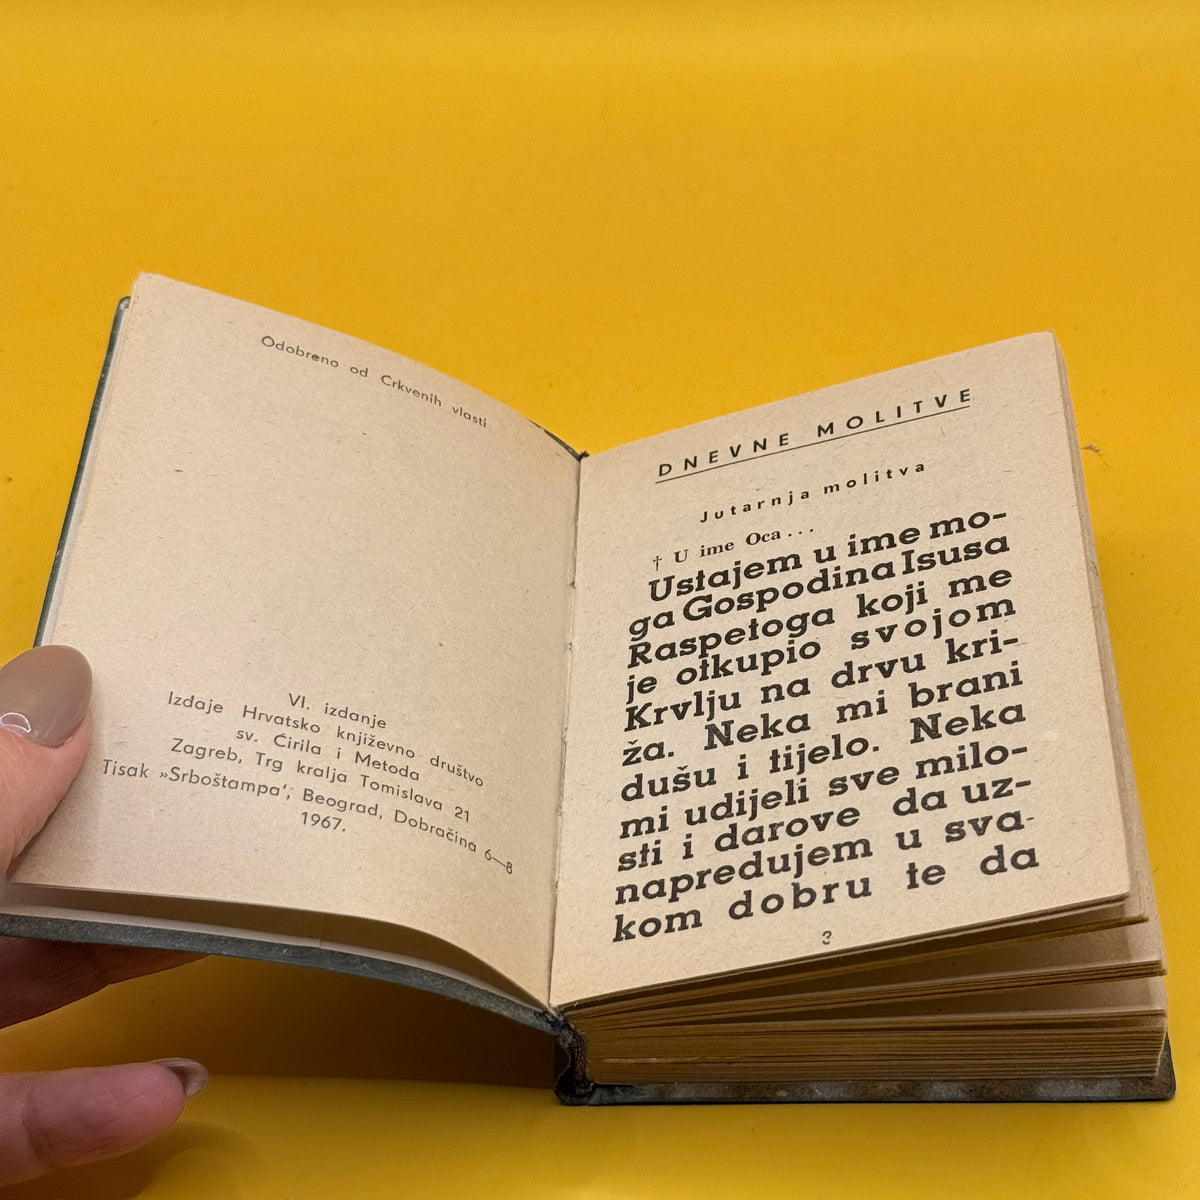 Odobreno od Crkvenih vlasti
VI. izdanje
Izdaje Hrvatsko književno društvo
sv. Ćirila i Metoda
Zagreb, Trg kralja Tomislava 21
Tisak »Srboštampa‘, Beograd, Dobračina 6—8
1967.
DNEVNE MOLITVE
Jutarnja molitva
† U ime Oca...
Ustajem u ime mo-
ga Gospodina Isusa
Raspetoga koji me
je otkupio svojom
Krvlju na drvu kri-
ža. Neka mi brani
dušu i tijelo. Neka
mi udijeli sve milo-
sti i darove da uz-
napredujem u sva-
kom dobru te da
3